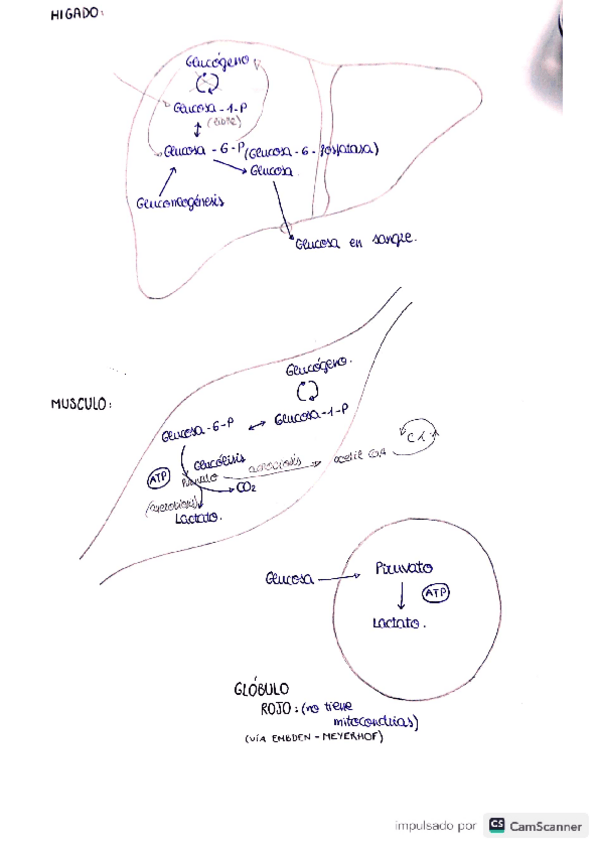 HIGADO:
Glucógeno
Glucosa-1-P
(libre)
Glucosa-6-P (Glucosa-6-fosfatasa)
Glucosa
Gluconeogénesis
Glucosa en sangre.
MUSCULO:
Glucógeno.
Glucosa-6-P
Glucosa-1-P
Glucólisis
Piruvato
aerobiosis
acetil CoA
CK
ATP
CO2
(anaerobiosis)
Lactato.
Glucosa
Piruvato
ATP
Lactato.
GLÓBULO
ROJO: (no tiene
mitocondrias)
(VÍA EMBDEN-MEYERHOF)
impulsado por CS CamScanner